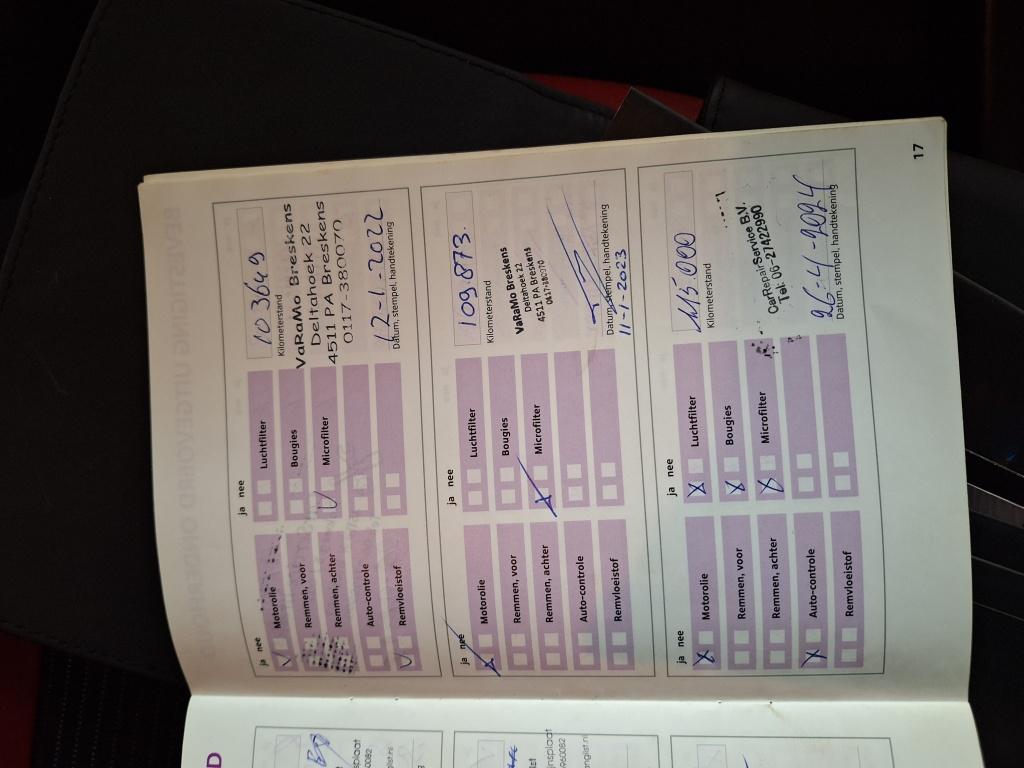 ja nee
Motorolie
Remmen, voor
Remmen, achter
Auto-controle
Remvloeistof
ja nee
Luchtfilter
Bougies
Microfilter
103649
Kilometerstand
VaRaMo Breskens
Deltahoek 22
4511 PA Breskens
0117-380070
12-1-2022
Datum, stempel, handtekening
ja nee
Motorolie
Remmen, voor
Remmen, achter
Auto-controle
Remvloeistof
ja nee
Luchtfilter
Bougies
Microfilter
109.873.
Kilometerstand
VaRaMo Breskens
Deltahoek 22
4511 PA Breskens
0117-380070
Datum, stempel, handtekening
11-1-2023
ja nee
Motorolie
Remmen, voor
Remmen, achter
Auto-controle
Remvloeistof
ja nee
Luchtfilter
Bougies
Microfilter
115.000
Kilometerstand
CarRepairService B.V.
Tel: 06-27422990
26-4-2024
Datum, stempel, handtekening
17
D